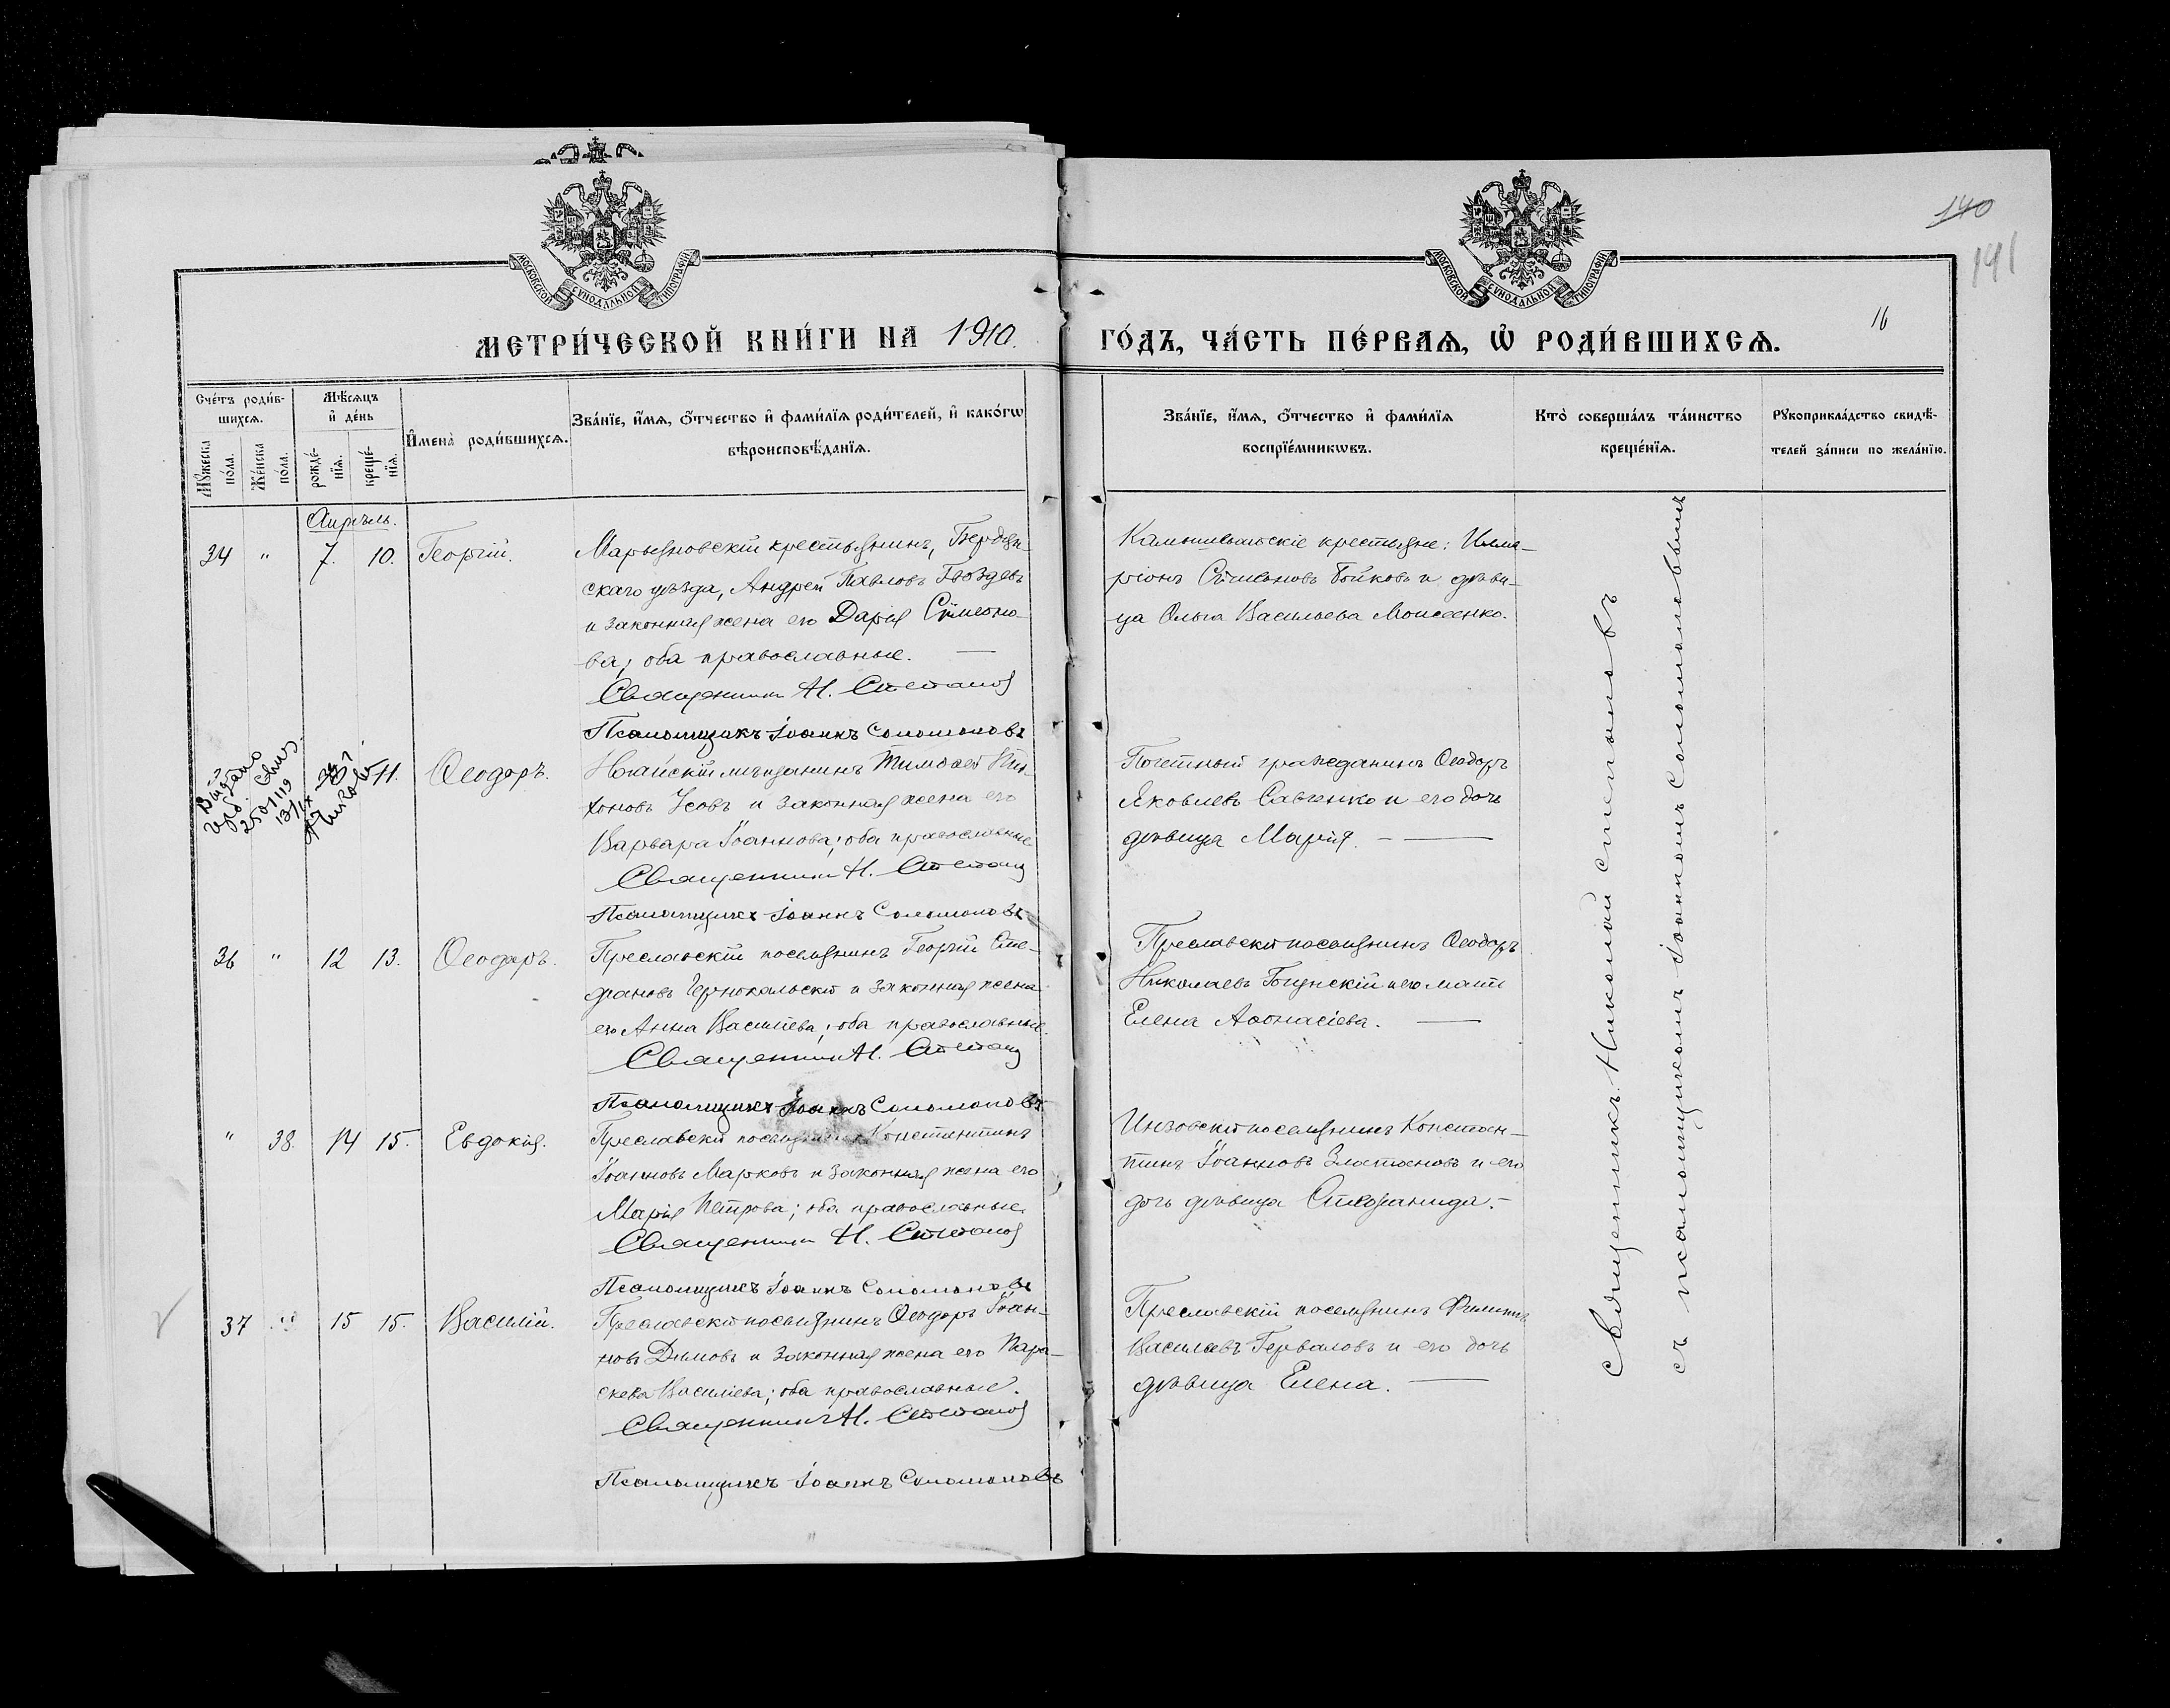 МОСКОВСКОЙ СѴНОДАЛЬНОЙ ТИПОГРАФІИ
МОСКОВСКОЙ СѴНОДАЛЬНОЙ ТИПОГРАФІИ
140
141
16
МЕТРИ́ЧЕСКОЙ КНИ́ГИ НА 1910. ГО́ДЪ, ЧА́СТЬ ПЕ́РВАЯ, Ѡ҆ РОДИ́ВШИХСЯ.
Сче́тъ роди́в-
шихся.
Мꙋ́жеска
по́ла.
Же́нска
по́ла.
Мѣ́сяцъ
и҆ де́нь
рожде́-
нїя.
креще́-
нїя.
И҆мена̀ роди́вшихся.
Зва́нїе, и҆́мя, ѻ҆́тчество и҆ фами́лїя роди́телей, и҆ како́гѡ
вѣроисповѣ́данїя.
Зва́нїе, и҆́мя, ѻ҆́тчество и҆ фами́лїя
воспрїе́мникѡвъ.
Кто̀ соверша́лъ та́инство
креще́нїя.
Рꙋкоприкла́дство свидѣ́-
телей за́писи по жела́нїю.
Апрѣль.
34 " 7. 10. Георгій.
Марьяновскій крестьянинъ, Бердян-
скаго уѣзда, Андрей Павловъ Гвоздевъ
и законная жена его Дарія Симеоно-
ва; оба православные.
Священникъ Н. Степановъ
Псаломщикъ Іоаннъ Соломоновъ
крестьяне: Илла-
ріонъ Бойковъ и дѣви-
ца Ольга Васильева Моисеенко.
Выдано
11. Ѳеодоръ.
Ногайскій мѣщанинъ Тимоѳей Ти-
хоновъ Усовъ и законная жена его
Варвара Іоаннова; оба православные
Священникъ Н. Степановъ
Псаломщикъ Іоаннъ Соломоновъ
Почетный гражданинъ Ѳеодоръ
Яковлевъ Савченко и его дочь
дѣвица Марія.
36 " 12 13. Ѳеодоръ.
Преславскій поселянинъ Георгій Сте-
фановъ и законная жена
его Анна Василіева; оба православные.
Священникъ Н. Степановъ
Псаломщикъ Іоаннъ Соломоновъ
Преславскій поселянинъ Ѳеодоръ
Николаевъ и его мать
Елена Аѳонасіева.
" 38. 14 15. Евдокія.
Преславскій поселянинъ Константинъ
Іоанновъ Марковъ и законная жена его
Марія Петрова; оба православные.
Священникъ Н. Степановъ
Псаломщикъ Іоаннъ Соломоновъ
Инзовскій поселянинъ Констан-
тинъ Іоанновъ Златановъ и его
дочь дѣвица Стефанида.
37 " 15 15. Василій.
Преславскій поселянинъ Ѳеодоръ Іоан-
новъ Димовъ и законная жена его Пара-
скева Василіева; оба православные.
Священникъ Н. Степановъ
Псаломщикъ Іоаннъ Соломоновъ
Преславскій поселянинъ Филиппъ
Васильевъ Герваловъ и его дочь
дѣвица Елена.
Священникъ Николай Степановъ
съ псаломщикомъ Іоанномъ Соломоновымъ